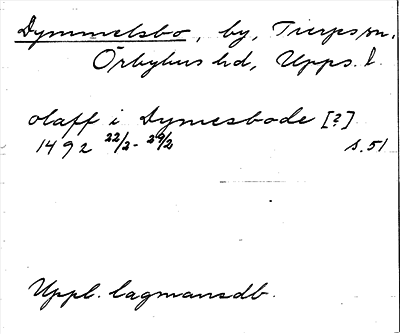 Dymmelsbo, by, Tierps sn.
Örbyhus hd, Upps. l.
olaff i Dymesbode [?]
1492 22/2 - 29/2 s. 51
Uppl. lagmansdb.